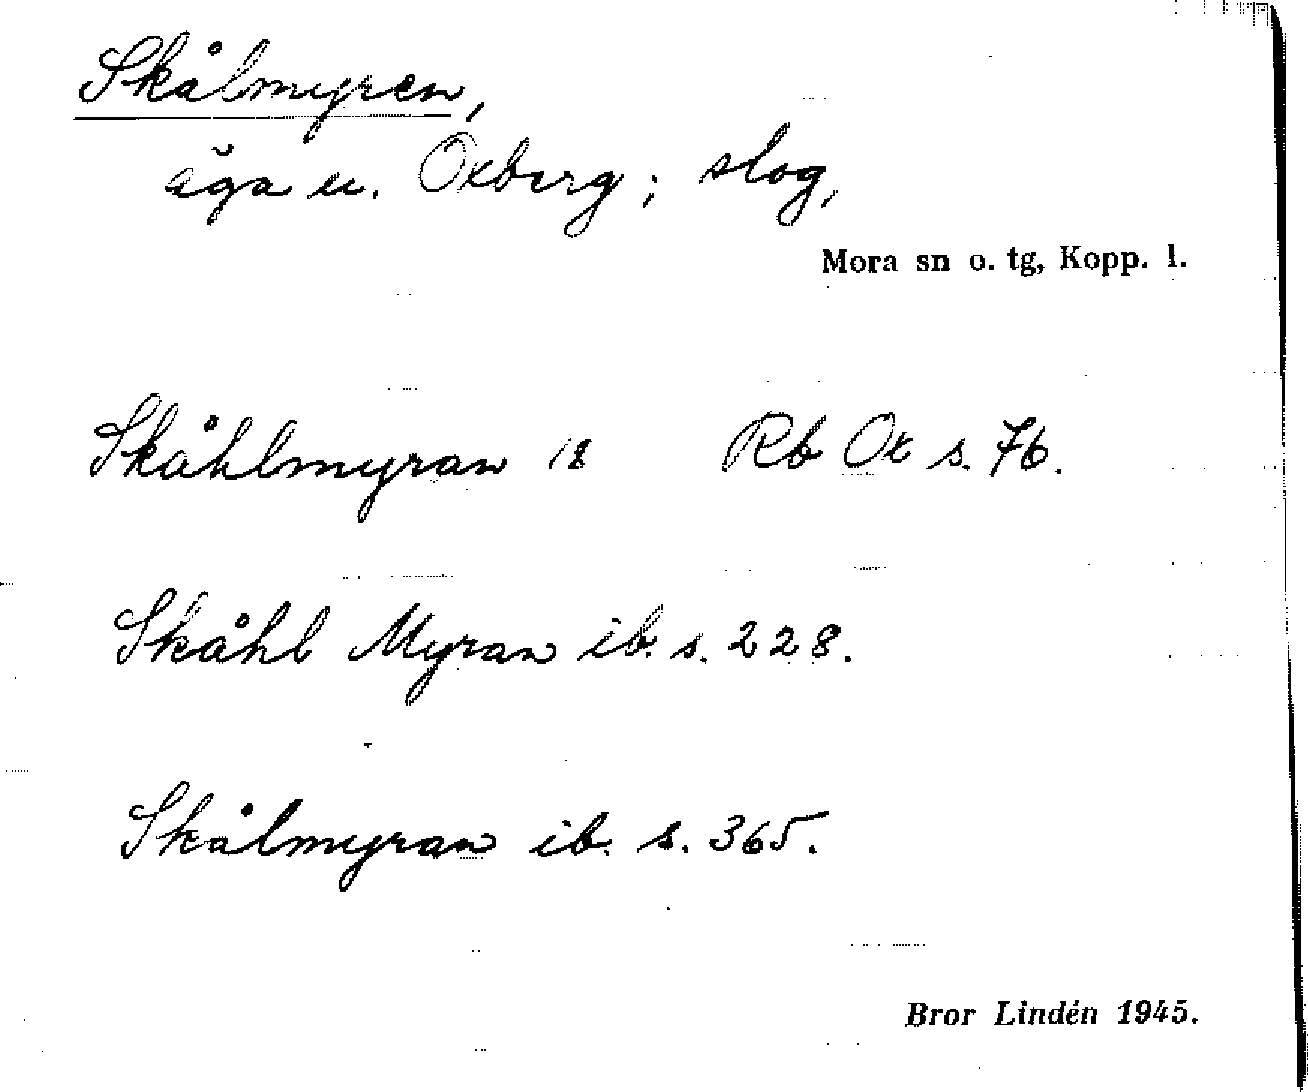 Skålmyren,
äga u. Oxberg; slog,
Mora sn o. tg, Kopp. l.
Skåhlmyran Rb Ox s. 76.
Skåhl Myran ib. s. 228.
Skålmyran ib. s. 365.
Bror Lindén 1945.